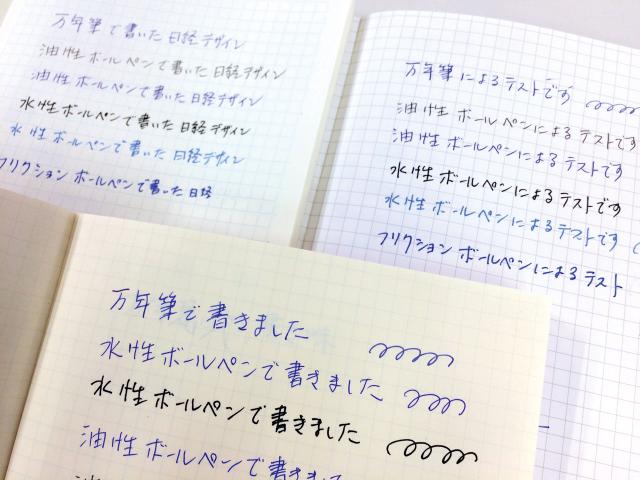 万年筆で書いた日経デザイン
油性ボールペンで書いた日経デザイン
油性ボールペンで書いた日経デザイン
水性ボールペンで書いた日経デザイン
水性ボールペンで書いた日経デザイン
フリクションボールペンで書いた日経
万年筆によるテストです
油性ボールペンによるテストです
油性ボールペンによるテストです
水性ボールペンによるテストです
水性ボールペンによるテストです
フリクションボールペンによるテスト
万年筆で書きました
水性ボールペンで書きました
水性ボールペンで書きました
油性ボールペンで書きま